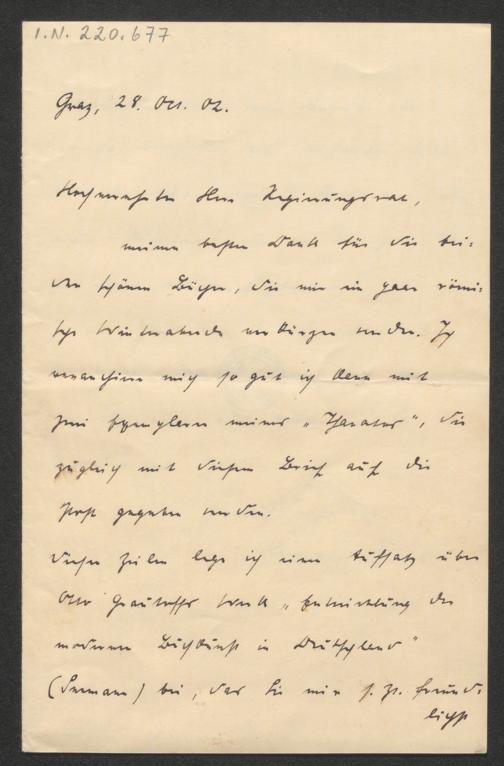 I.N. 220.677
Graz, 28. Oct. 02.
Hochverehrter Herr Regierungsrat,
meinen besten Dank für die bei-
den schönen Bücher, die mir ein paar römi-
sche Winterabende verkürzen werden. Ich
revanchiere mich so gut ich kann mit
zwei Exemplaren meines „Thanatos", die
zugleich mit diesem Brief auf die
Post gegeben werden.
Diesen Zeilen lege ich einen Aufsatz über
Otto Grautoffs Werk „Entwicklung der
modernen Buchkunst in Deutschland"
(Seemann) bei, das Sie mir s. Zt. freund-
lichst